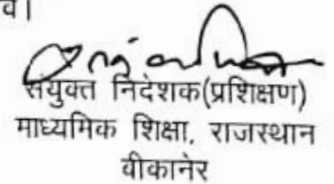 व।
संयुक्त निदेशक(प्रशिक्षण)
माध्यमिक शिक्षा, राजस्थान
बीकानेर